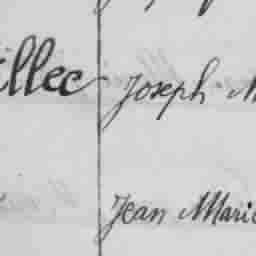 illec Joseph M
Jean Marie